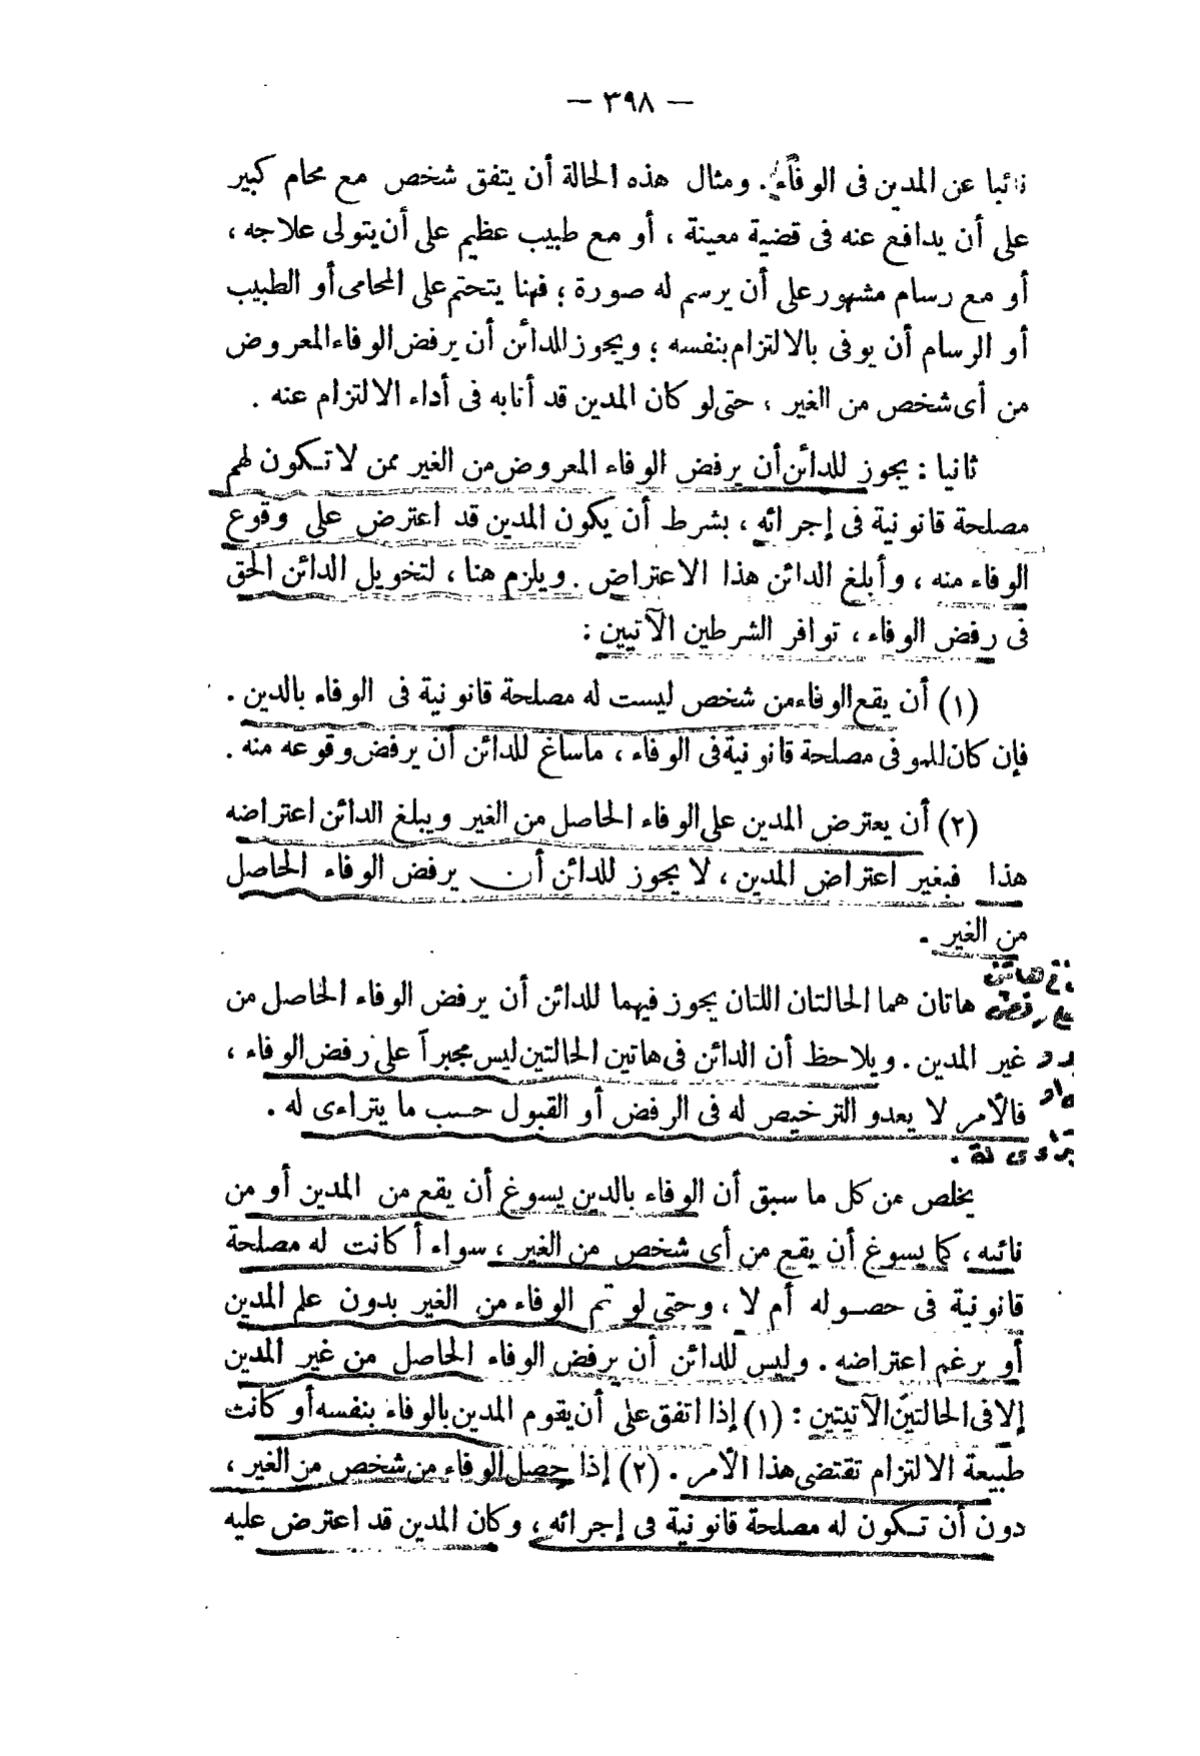 — ٣٩٨ —
نائبا عن المدين فى الوفاء. ومثال هذه الحالة أن يتفق شخص مع محام كبير
على أن يدافع عنه فى قضية معينة ، أو مع طبيب عظيم على أن يتولى علاجه ،
أو مع رسام مشهور على أن يرسم له صورة ؛ فهنا يتحتم على المحامى أو الطبيب
أو الرسام أن يوفى بالالتزام بنفسه ؛ ويجوز للدائن أن يرفض الوفاء المعروض
من أى شخص من الغير ، حتى لو كان المدين قد أنابه فى أداء الالتزام عنه .
ثانيا : يجوز للدائن أن يرفض الوفاء المعروض من الغير ممن لا تكون لهم
مصلحة قانونية فى إجرائه ، بشرط أن يكون المدين قد اعترض على وقوع
الوفاء منه ، وأبلغ الدائن هذا الاعتراض . ويلزم هنا ، لتخويل الدائن الحق
فى رفض الوفاء ، توافر الشرطين الآتيين :
(١) أن يقع الوفاء من شخص ليست له مصلحة قانونية فى الوفاء بالدين .
فإن كان للموفى مصلحة قانونية فى الوفاء ، ماساغ للدائن أن يرفض وقوعه منه .
(٢) أن يعترض المدين على الوفاء الحاصل من الغير ويبلغ الدائن اعتراضه
هذا فبغير اعتراض المدين ، لا يجوز للدائن أن يرفض الوفاء الحاصل
من الغير .
هاتان هما الحالتان اللتان يجوز فيهما للدائن أن يرفض الوفاء الحاصل من
غير المدين . ويلاحظ أن الدائن فى هاتين الحالتين ليس مجبراً على رفض الوفاء ،
فالأمر لا يعدو الترخيص له فى الرفض أو القبول حسب ما يتراءى له .
يخلص من كل ما سبق أن الوفاء بالدين يسوغ أن يقع من المدين أو من
نائبه ، كما يسوغ أن يقع من أى شخص من الغير ، سواء أكانت له مصلحة
قانونية فى حصوله أم لا ، وحتى لو تم الوفاء من الغير بدون علم المدين
أو برغم اعتراضه . وليس للدائن أن يرفض الوفاء الحاصل من غير المدين
إلا فى الحالتين الآتيتين : (١) إذا اتفق على أن يقوم المدين بالوفاء بنفسه أو كانت
طبيعة الالتزام تقتضى هذا الأمر . (٢) إذا حصل الوفاء من شخص من الغير ،
دون أن تكون له مصلحة قانونية فى إجرائه ، وكان المدين قد اعترض عليه